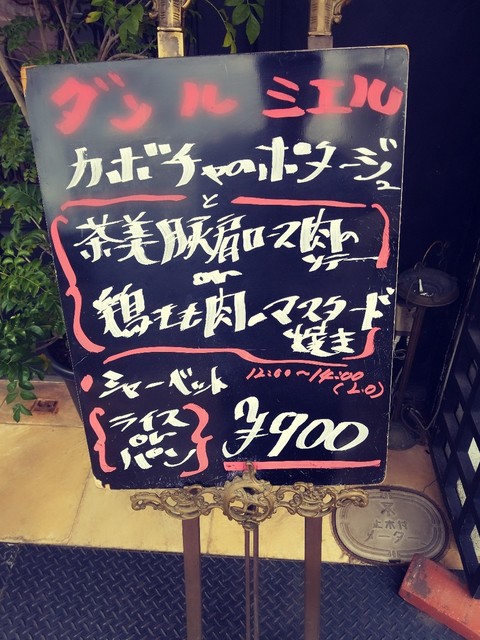 ダン ル ミエル
カボチャのポタージュ
と
茶美豚肩ロース肉の
ソテー
or
鶏もも肉のマスタード
焼き
シャーベット
12:00～14:00
(L.O)
ライス
or
パン
¥900
メーター